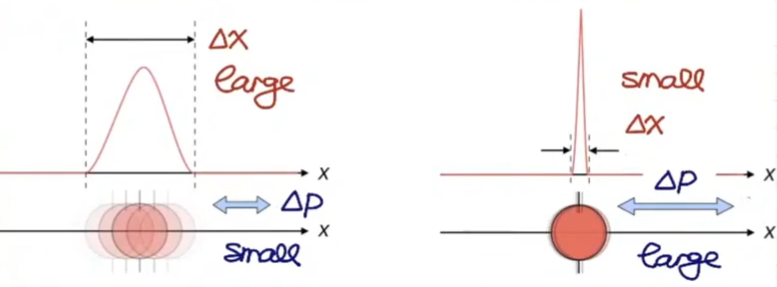 Δx
large
x
Δp
x
small
small
Δx
x
Δp
x
large